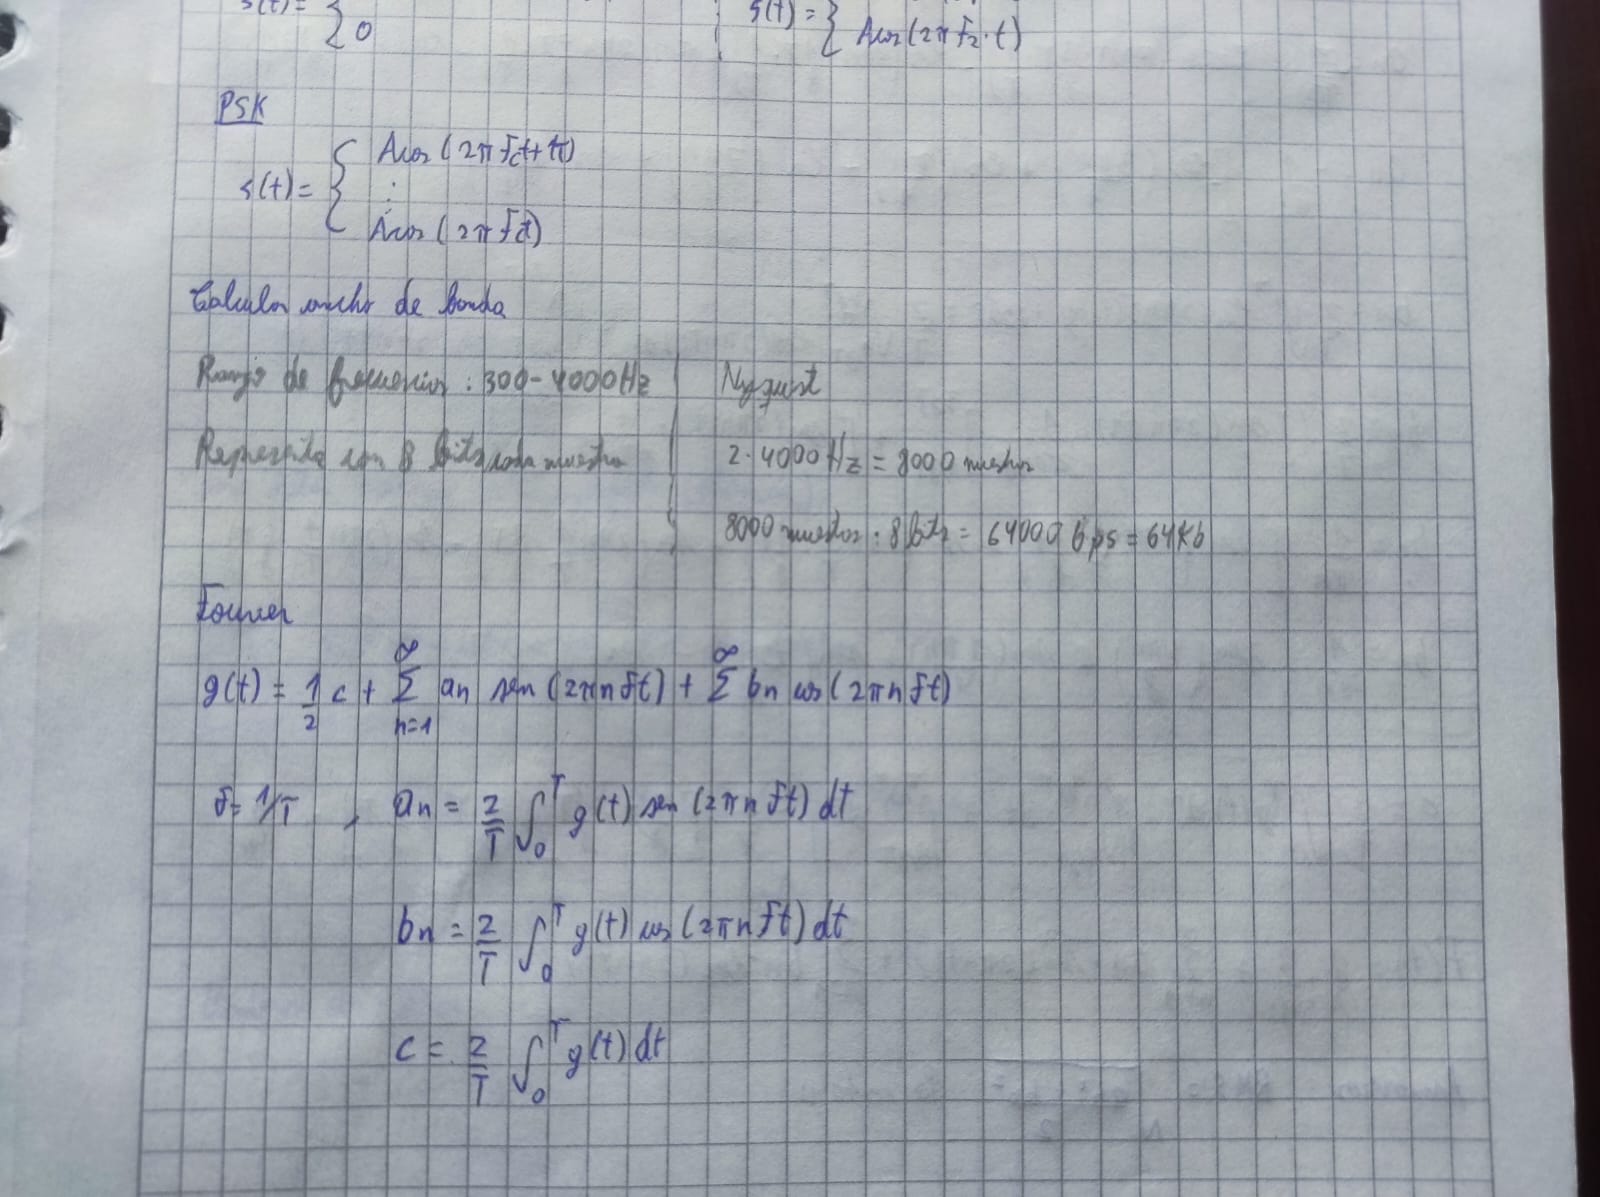 s(t) = { 0
s(t) = { Acos(2π f2·t)
PSK
s(t) = { Acos(2π fct+π)
:
Acos(2π fct)
Calcular ancho de banda
Rango de frecuencias : 300-4000Hz
Representa con 8 bits cada muestra
Nyquist
2·4000Hz = 8000 muestras
8000 muestras · 8 bits = 64000 bps = 64Kb
Fourier
g(t) = 1/2 c + ∑ n=1 ∞ an sen (2πn ft) + ∑ ∞ bn cos (2πn ft)
f = 1/T , an = 2/T ∫0 T g(t) sen (2πn ft) dt
bn = 2/T ∫0 T g(t) cos (2πn ft) dt
c = 2/T ∫0 T g(t) dt